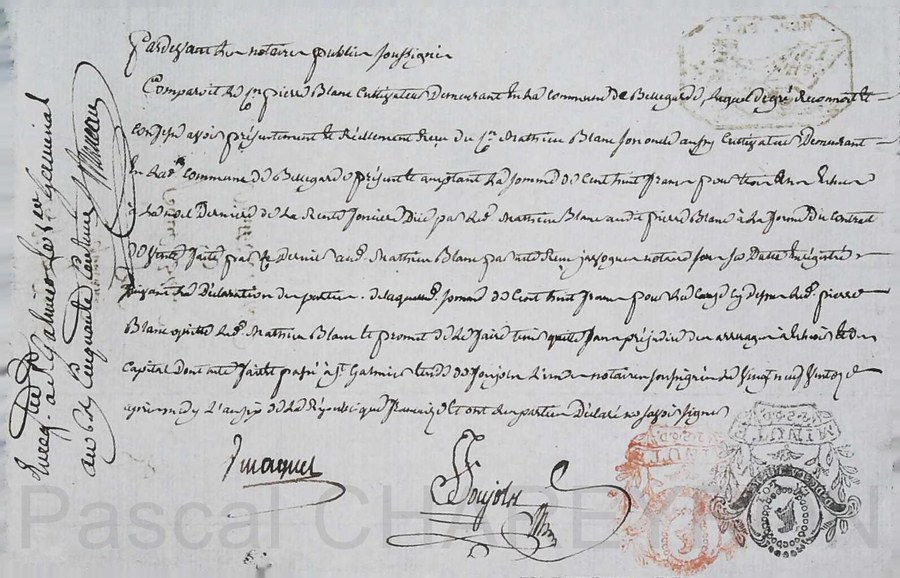 Pardevant les notaires publics soussignés
Comparoit le Cn pierre Blanc Cultivateur Demeurant En la Commune de Bellegarde, lequel de gré Reconnoit et
Confesse avoir présentement et Réellement Reçu du Cn Mathieu Blanc son oncle aussy Cultivateur Demeurant
En lad. Commune de Bellegarde présent et acceptant la somme de Cent huit francs pour trois Echus
à la noel Derniere de la Rente fonciere Düe par led. Mathieu Blanc audit pierre Blanc à la forme du Contrat
De Vente faite par Ce Dernier aud. Mathieu Blanc par acte Reçu notaire sous sa Datte Enregistré
suivant la Déclaration des parties. De laquelle somme de Cent huit francs pour les led. pierre
Blanc quitte led. Mathieu Blanc et promet de le faire tenir quitte sans préjudice des arrerages à Echoir et du
Capital dont acte fait et passé à St Galmier Etude de Poujols L'un des notaires soussignés le Vingt neuf Ventose
après midy L'an six de la République française Et ont les parties Déclaré ne savoir signer
Poujols
Enregtré à Galmier le germinal
an 6 R. Cinquante Centimes
MINUTE
MINUTE
Pascal CHAREYRON